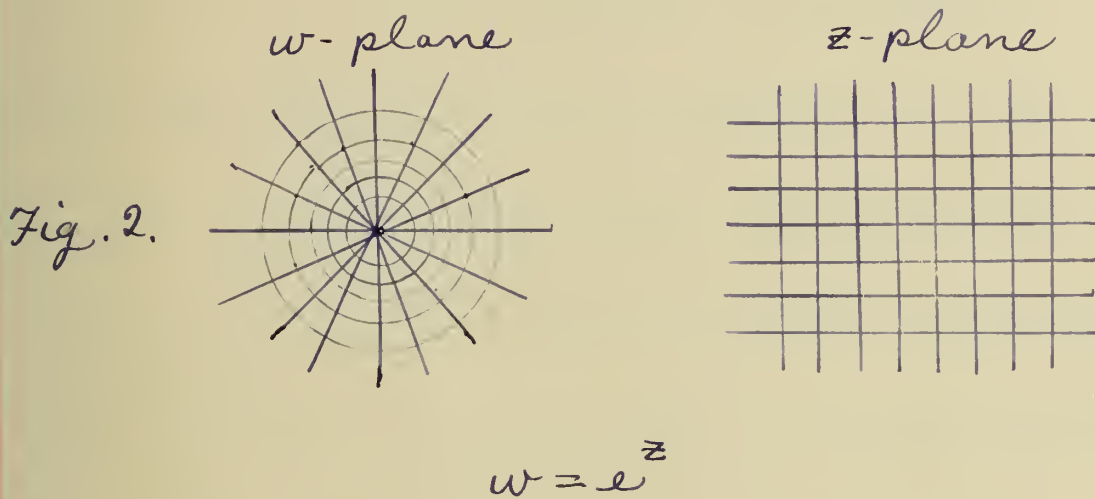 w-plane z-plane
Fig. 2.
w = e^z